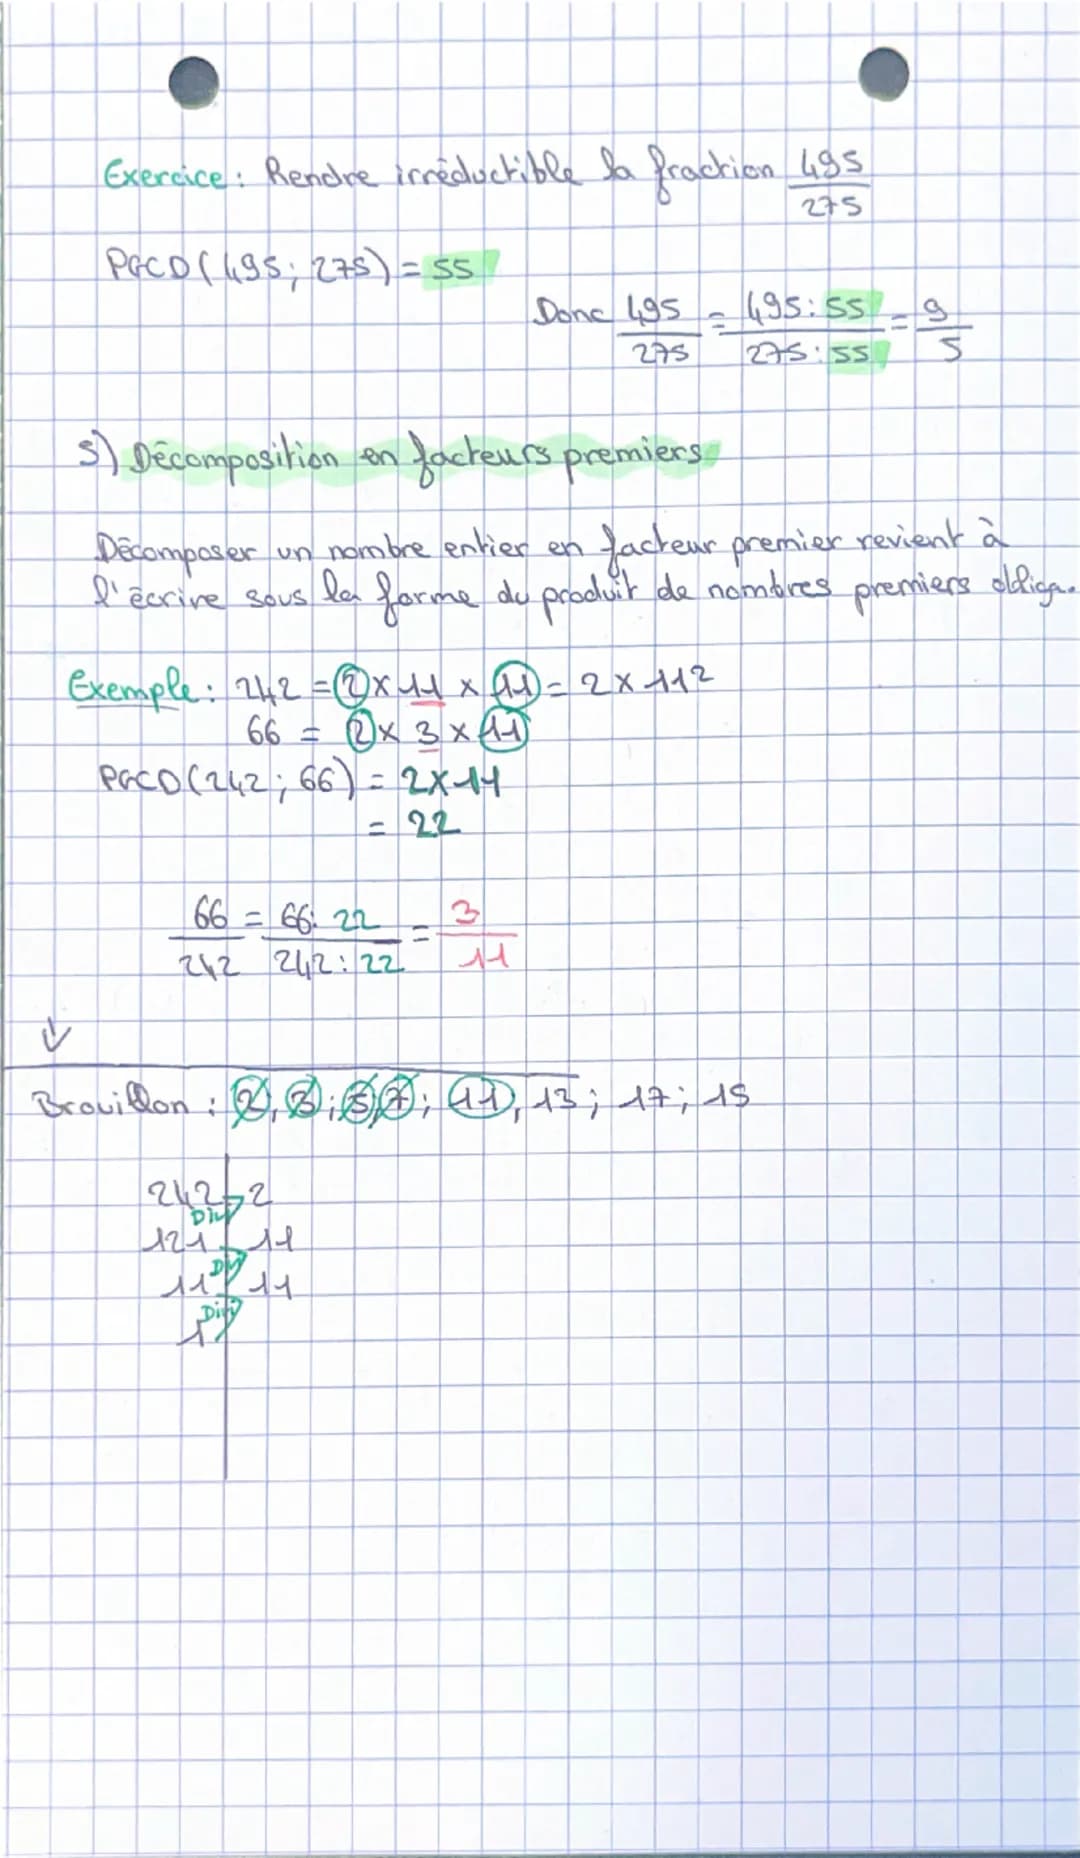 Exercice : Rendre irréductible la fraction 495/275
PGCD(495; 275) = 55
Donc 495/275 = 495:55/275:55 = 9/5
5) Décomposition en facteurs premiers
Décomposer un nombre entier en facteur premier revient à
l'écrire sous la forme du produit de nombres premiers obliga.
Exemple : 242 = 2 x 11 x 11 = 2 x 11²
66 = 2 x 3 x 11
PGCD(242; 66) = 2x11
= 22
66/242 = 66:22/242:22 = 3/11
Brouillon : 2, 3; 5, 7; 11, 13; 17; 19
242 2
Div
121 11
Div
11 11
Div
1